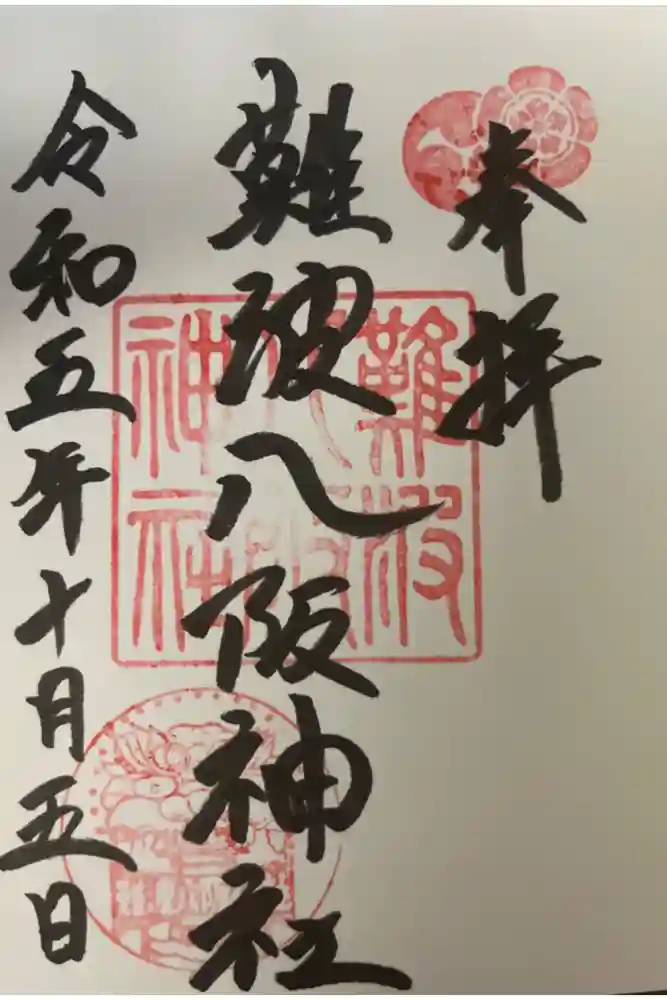 奉拝
難波八阪神社
令和五年十月五日
難波八阪神社